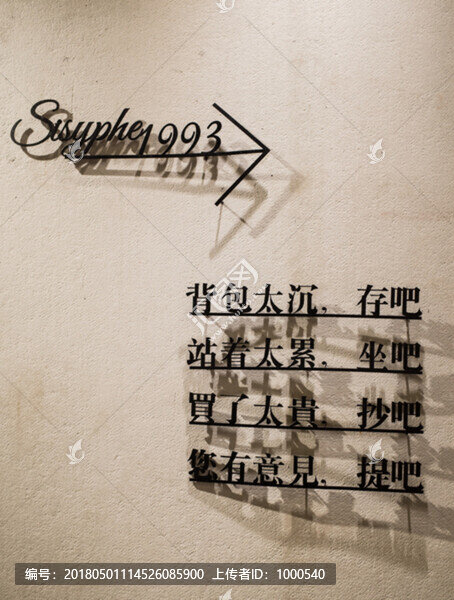 Sisyphe1993
背包太沉，存吧
站着太累，坐吧
買了太貴，抄吧
您有意見，提吧
编号：20180501114526085900 上传者ID：1000540